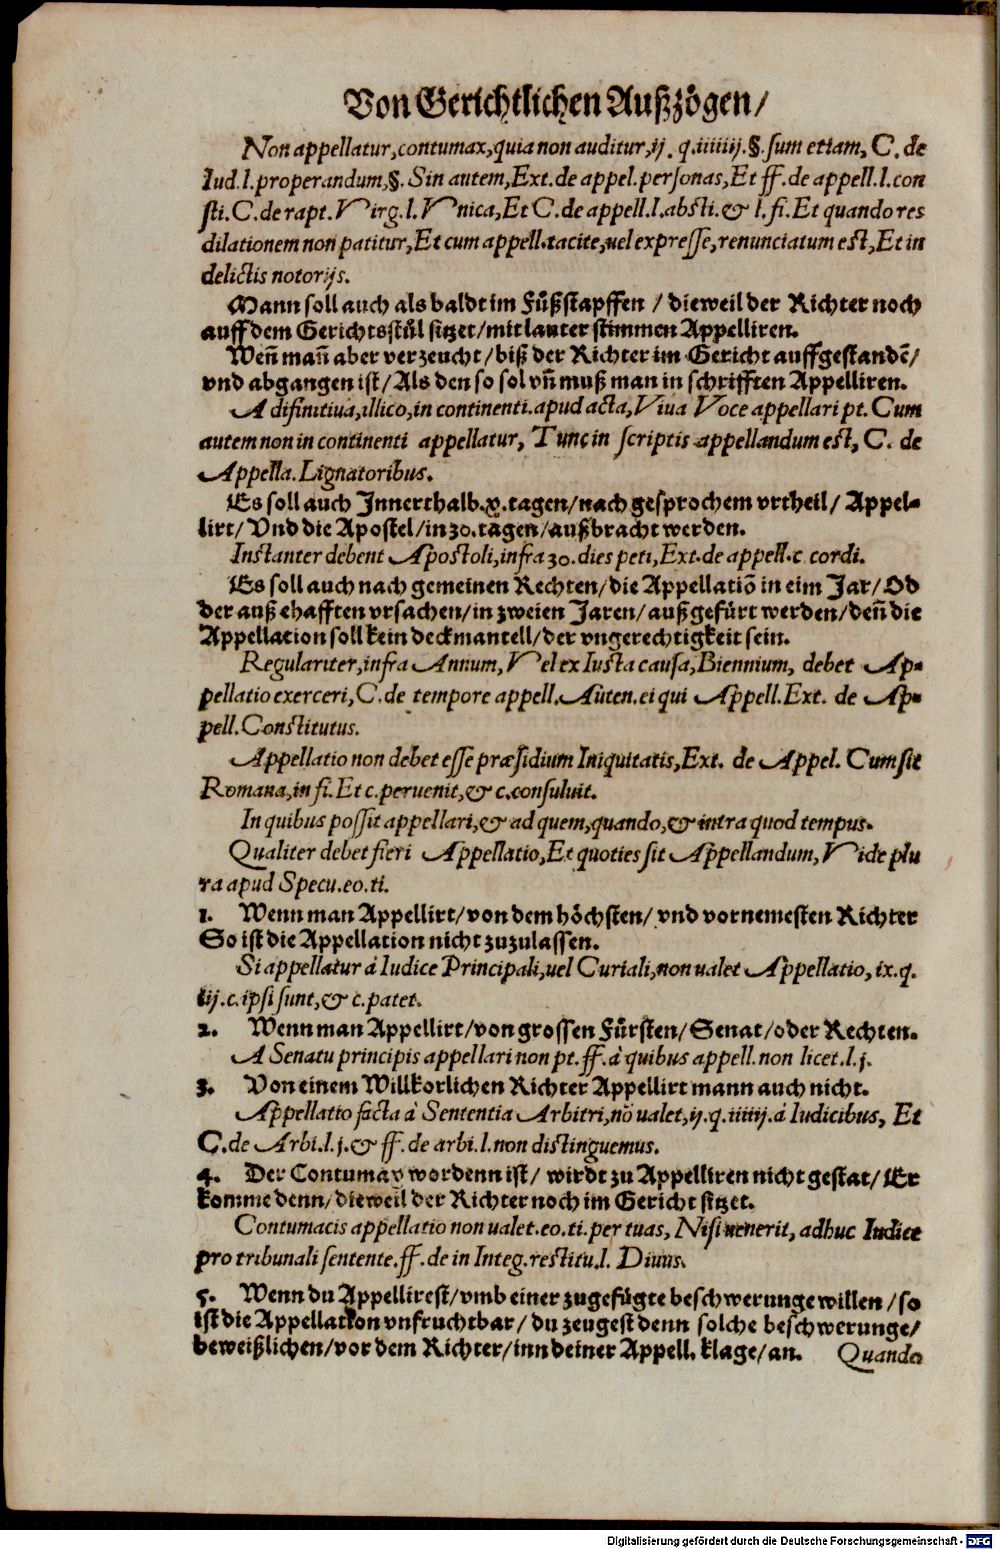 Von Gerichtlichen Außzögen/
Non appellatur, contumax, quia non auditur, ij. q. iiiiij. §. sum etiam, C. de
Iud. l. properandum, §. Sin autem, Ext. de appel. personas, Et ff. de appell. l. con
sti. C. de rapt. Virg. l. Vnica, Et C. de appell. l. absti. & l. fi. Et quando res
dilationem non patitur, Et cum appell. tacite, uel expresse, renunciatum est, Et in
delictis notorijs.
Mann soll auch als baldt im Fůßstapffen / dieweil der Richter noch
auff dem Gerichtsstůl sitzet/mit lauter stimmen Appelliren.
Weñ mañ aber verzeucht/biß der Richter im Gericht auffgestandẽ/
vnd abgangen ist/Als den so sol vñ muß man in schrifften Appelliren.
A difinitiua, illico, in continenti. apud acta, Viua Voce appellari pt. Cum
autem non in continenti appellatur, Tunc in scriptis appellandum est, C. de
Appella. Lignatoribus.
Es soll auch Innerthalb. x. tagen/nach gesprochem vrtheil/ Appel-
lirt/ Vnd die Apostel/in 30. tagen/außbracht werden.
Instanter debent Apostoli, infra 30. dies peti, Ext. de appell. c. cordi.
Es soll auch nach gemeinen Rechten/die Appellatiõ in eim Jar/Od
der auß ehafften vrsachen/in zweien Jaren/außgefürt werden/deñ die
Appellation soll kein deckmantell/der vngerechtigkeit sein.
Regulariter, infra Annum, Vel ex Iusta causa, Biennium, debet Ap-
pellatio exerceri, C. de tempore appell. Auten. ei qui Appell. Ext. de Ap-
pell. Constitutus.
Appellatio non debet esse præsidium Iniquitatis, Ext. de Appel. Cum sit
Romana, in fi. Et c. peruenit, & c. consuluit.
In quibus possit appellari, & ad quem, quando, & intra quod tempus.
Qualiter debet fieri Appellatio, Et quoties sit Appellandum, Vide plu
ra apud Specu. eo. ti.
1. Wenn man Appellirt/von dem höchsten/ vnd vornemesten Richter
So ist die Appellation nicht zuzulassen.
Si appellatur à Iudice Principali, uel Curiali, non ualet Appellatio, ix. q.
iij. c. ipsi sunt, & c. patet.
2. Wenn man Appellirt/von grossen Fürsten/ Senat/oder Rechten.
A Senatu principis appellari non pt. ff. à quibus appell. non licet. l. j.
3. Von einem Willkorlichen Richter Appellirt mann auch nicht.
Appellatio facta à Sententia Arbitri, nõ ualet, ij. q. iiiiij. à Iudicibus, Et
C. de Arbi. l. j. & ff. de arbi. l. non distinguemus.
4. Der Contumax wordenn ist/ wirdt zu Appelliren nicht gestat/ Er
komme denn/dieweil der Richter noch im Gericht sitzet.
Contumacis appellatio non ualet. eo. ti. per tuas, Nisi uenerit, adhuc Iudice
pro tribunali sentente. ff. de in Integ. restitu. l. Diuus.
5. Wenn du Appellirest/vmb einer zugefügte beschwerunge willen/so
ist die Appellation vnfruchtbar/ du zeugest denn solche beschwerunge/
beweißlichen/vor dem Richter/inn deiner Appell. klage/an. Quando
Digitalisierung gefördert durch die Deutsche Forschungsgemeinschaft - DFG